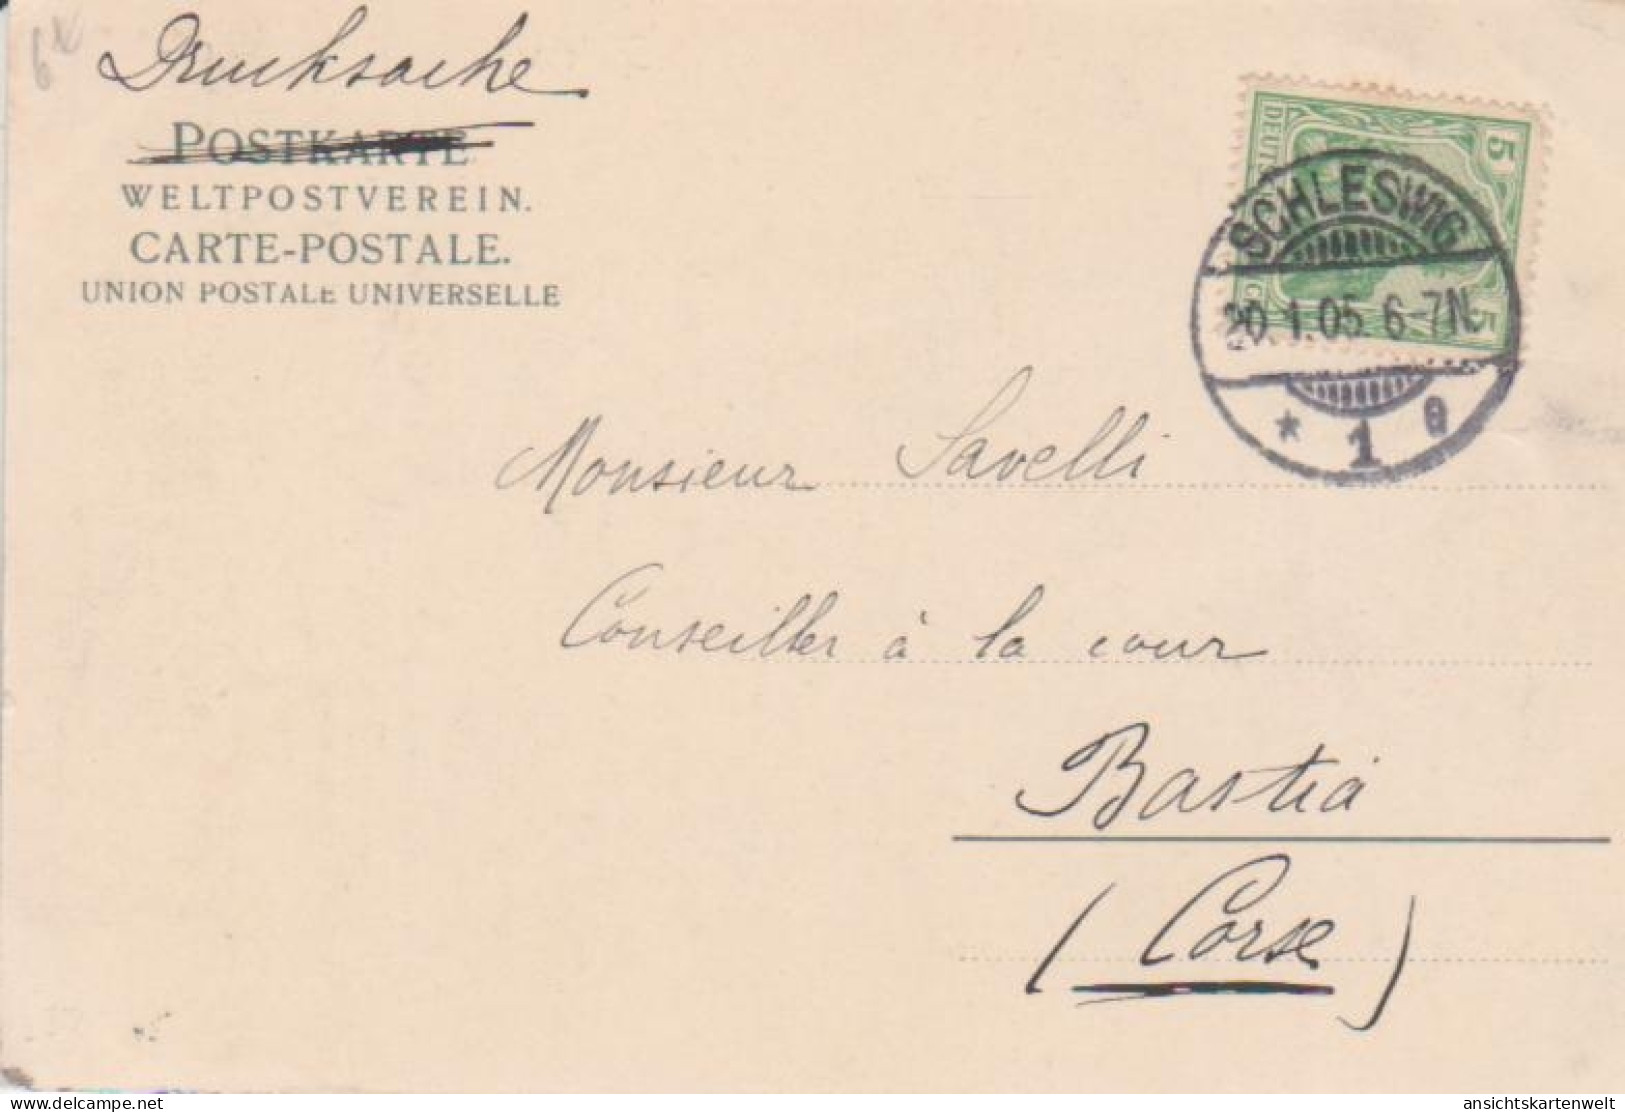 Drucksache
POSTKARTE
WELTPOSTVEREIN.
CARTE-POSTALE.
UNION POSTALE UNIVERSELLE
5
DEUTSCH
5
SCHLESWIG
20.1.05 6-7N.
* 1 a
Monsieur Savelli
Conseiller à la cour
Bastia
(Corse)
ansichtskartenwelt